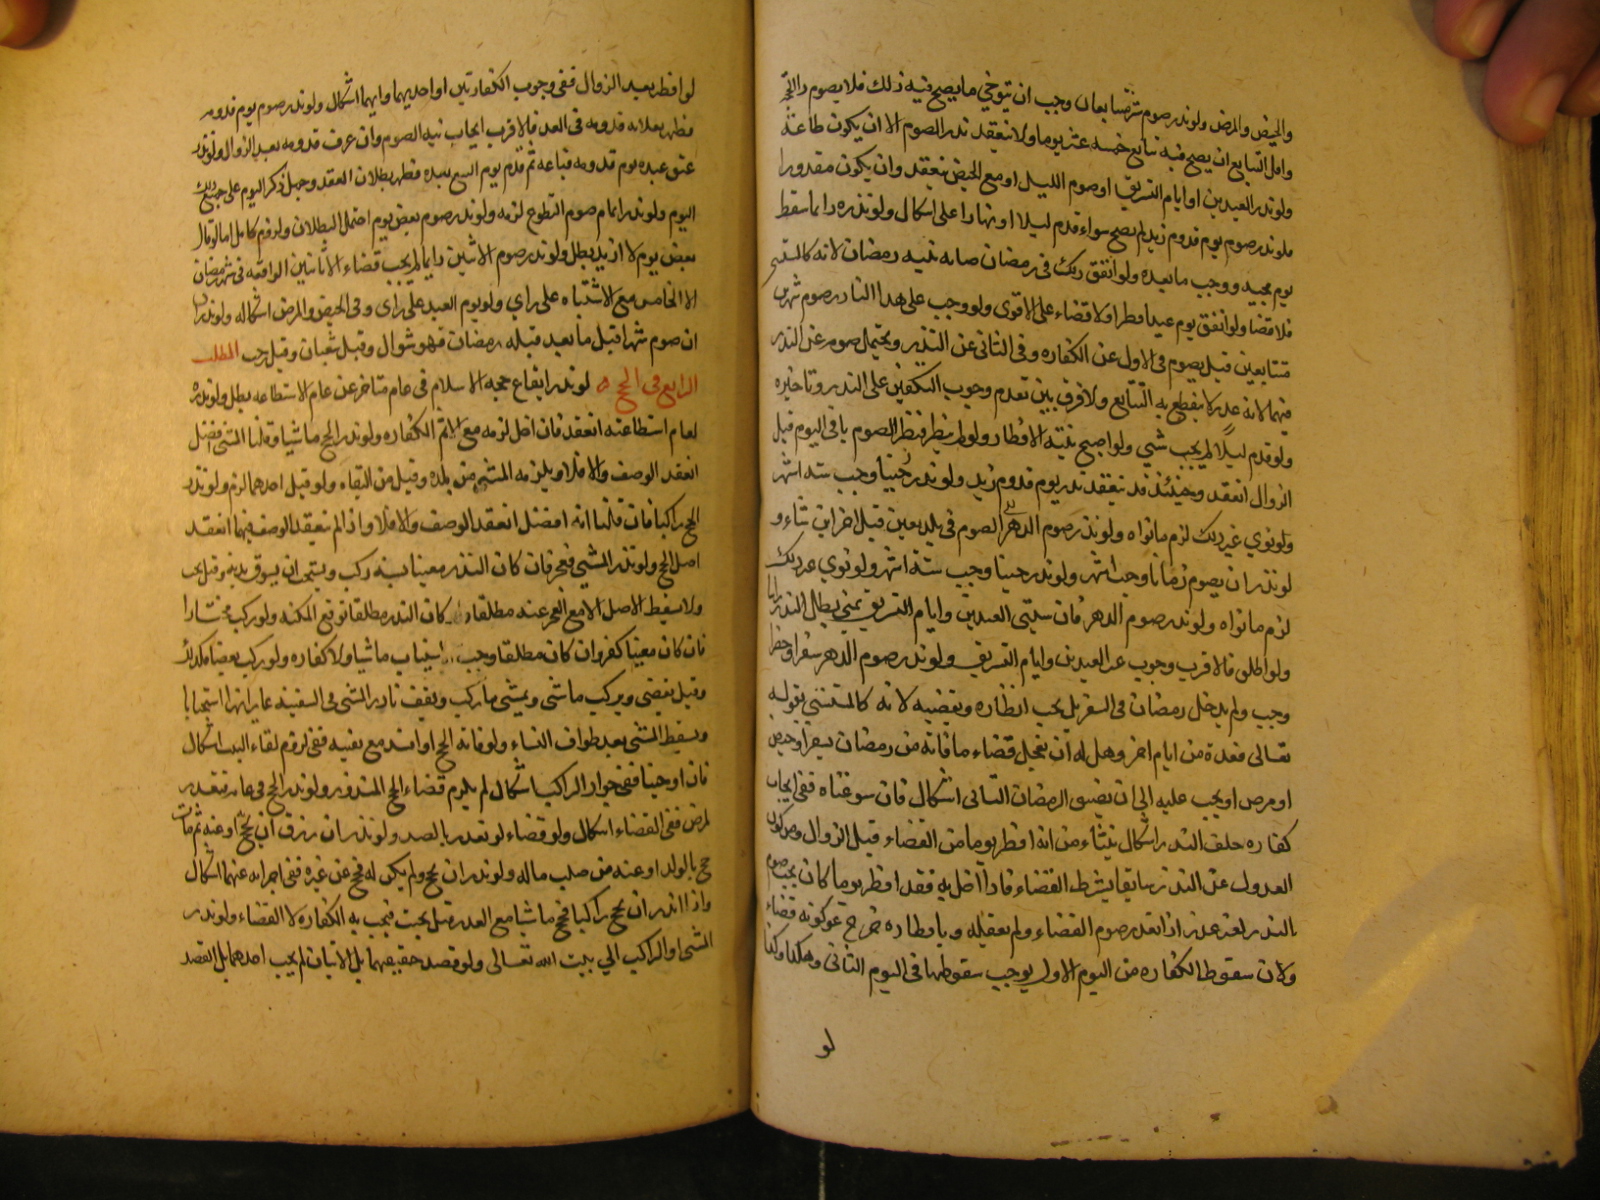 والحيض والمرض ولو نذر صوم شهر متتابعا وجب ان يتوخي ما يصح فيه ذلك فلا يصوم ذا الحجة
واقل التتابع ان يصح فيه تتابع خمسه عشر يوما ولا ينعقد نذر الصوم الا ان يكون طاعة
ولو نذر العيدين او ايام التشريق او صوم الليل او مع الحيض لم ينعقد وان يكون مقدورا
فلو نذر صوم يوم قدوم زيد لم يصح سواء قدم ليلا او نهارا على اشكال ولو نذره دايما سقط
يوم مجيئه ووجب ما بعده ولو اتفق ذلك في رمضان صامه بنيه رمضان لانه كالمستثنى
فلا قضا ولو اتفق يوم عيد افطر ولا قضاء على الاقوى ولو وجب على هذا الناذر صوم شهرين
متتابعين قيل يصوم في الاول عن الكفاره وفي الثاني عن النذر ويحتمل صومه عن النذر
فيهما لانه عذر لا ينقطع به التتابع ولا فرق بين تقدم وجوب التكفير على النذر وتاخيره
ولو قدم ليلا لم يجب شي ولو اصبح بنيه الافطار ولم يفطر فنذر الصوم باقي اليوم قبل
الزوال انعقد وحينئذ قد ينعقد نذر يوم قدوم زيد ولو نذر حينا وجب سته اشهر
ولو نوي غير ذلك لزم ما نواه ولو نذر صوم الدهر الصوم في بلد معين قيل اجزا اين شاء و
لو نذر ان يصوم زمانا وجب اشهر ولو نذر حينا وجب ستة اشهر ولو نوي غير ذلك
لزم ما نواه ولو نذر صوم الدهر فان سيثنى العيدين وايام التشريق بمني بطل النذر
ولو اطلق فالاقرب وجوب غير العيدين وايام التشريق ولو نذر صوم الدهر سفرا وحضرا
وجب ولم يدخل رمضان في السفر بل يجب افطاره ويقضيه لانه كالمستثنى بقوله
تعالى فعدة من ايام اخر وهل له ان يعجل قضاء ما فاته من رمضان بسفر او حيض
او مرض او يجب عليه الى ان يضيق الرمضان الثاني اشكال فان سوغناه ففي ايجاب
كفاره خلف النذر اشكال ينشاء من انه افطر يوما من القضاء قبل الزوال ومن كون
العدول عن النذر سايغا بشرط القضاء فاذا اخل به فقد افطر يوما كان يجب صومه
بالنذر لغير عذر اذ العذر صوم القضاء ولم يفعله وبافطاره خرج عن كونه قضاء
ولان سقوط الكفاره من اليوم الاول يوجب سقوطها في اليوم الثاني وهكذا وكذا
لو
لو افطر بعد الزوال ففي وجوب الكفارتين او احديهما وايهما اشكال ولو نذر صوم يوم قدومه
فظهر بعلامه قدومه في الغد فالاقرب ايجاب نيه الصوم وان عرف قدومه بعد الزوال ولو نذر
عتق عبده يوم قدومه فباعه ثم قدم يوم البيع بعده فظهر بطلان العقد وحمل ذكر اليوم على جميع ذلك
اليوم ولو نذر اتمام صوم التطوع لزمه ولو نذر صوم بعض يوم احتمل البطلان ولزوم كامل اما لو قال
بعض يوم لا ازيد بطل ولو نذر صوم الاثنين دايما لم يجب قضاء الاثانين الواقعه في شهر رمضان
الا الخامس مع الاشتباه على راي ولو يوم العيد على راي وفي الحيض والمرض اشكال ولو نذر
ان صوم شهرا قبل ما بعد قبله رمضان فهو شوال وقيل شعبان وقيل رجب المطلب
الرابع في الحج لو نذر ايقاع حجه الاسلام في عام متاخر عن عام الاستطاعه بطل ولو نذره
لعام استطاعته انعقد فان اخل لزمه مع الاثم الكفاره ولو نذر الحج ماشيا وقلنا المشي افضل
انعقد الوصف والا فلا ويلزمه المشي من بلده وقيل من الميقات ولو قيل احدهما لزم ولو نذر
الحج راكبا فان قلنا انه افضل انعقد الوصف والا فلا واذا لم ينعقد الوصف فيهما انعقد
اصل الحج ولو نذر المشي فعجز فان كان النذر معينا بسنه ركب ويستحب ان يسوق بدنه وقيل يجب
ولا يسقط الاصل الا مع العجز عنه مطلقا كان النذر مطلقا توقع المكنه ولو ركب مختارا
فان كان معينا كفر وان كان مطلقا وجب استيناف ماشيا ولا كفاره ولو ركب بعضا فكذلك
وقيل يقضي ويركب ما مشى ويمشي ما ركب ويقف ناذر المشي في السفينه عابرا نهرا استحبابا
ويسقط المشي بعد طواف النساء ولو فاته الحج او افسد مع تعينه ففي لزوم لقاء البيت اشكال
فان اوجبنا ففي جواز الركب اشكال لم يلزم قضاء الحج المنذور ولو نذر الحج في عامه فتعذر
لمرض ففي القضاء اشكال ولو قضاء لو تعذر بالصد ولو نذر ان رزق ان يحج او عنه ثم مات
حج بالولد او عنه من صلب ماله ولو نذر ان يحج ولم يكن له فحج عن غيره ففي اجزاءه عنهما اشكال
واذا نذر ان يحج راكبا فحج ماشيا مع القدره قيل يحنث فيجب به الكفاره لا القضاء ولو نذر
المشي او الركب الي بيت الله تعالى ولو قصد حقيقتهما بل الاتيان لم يجب احدهما بل القصد